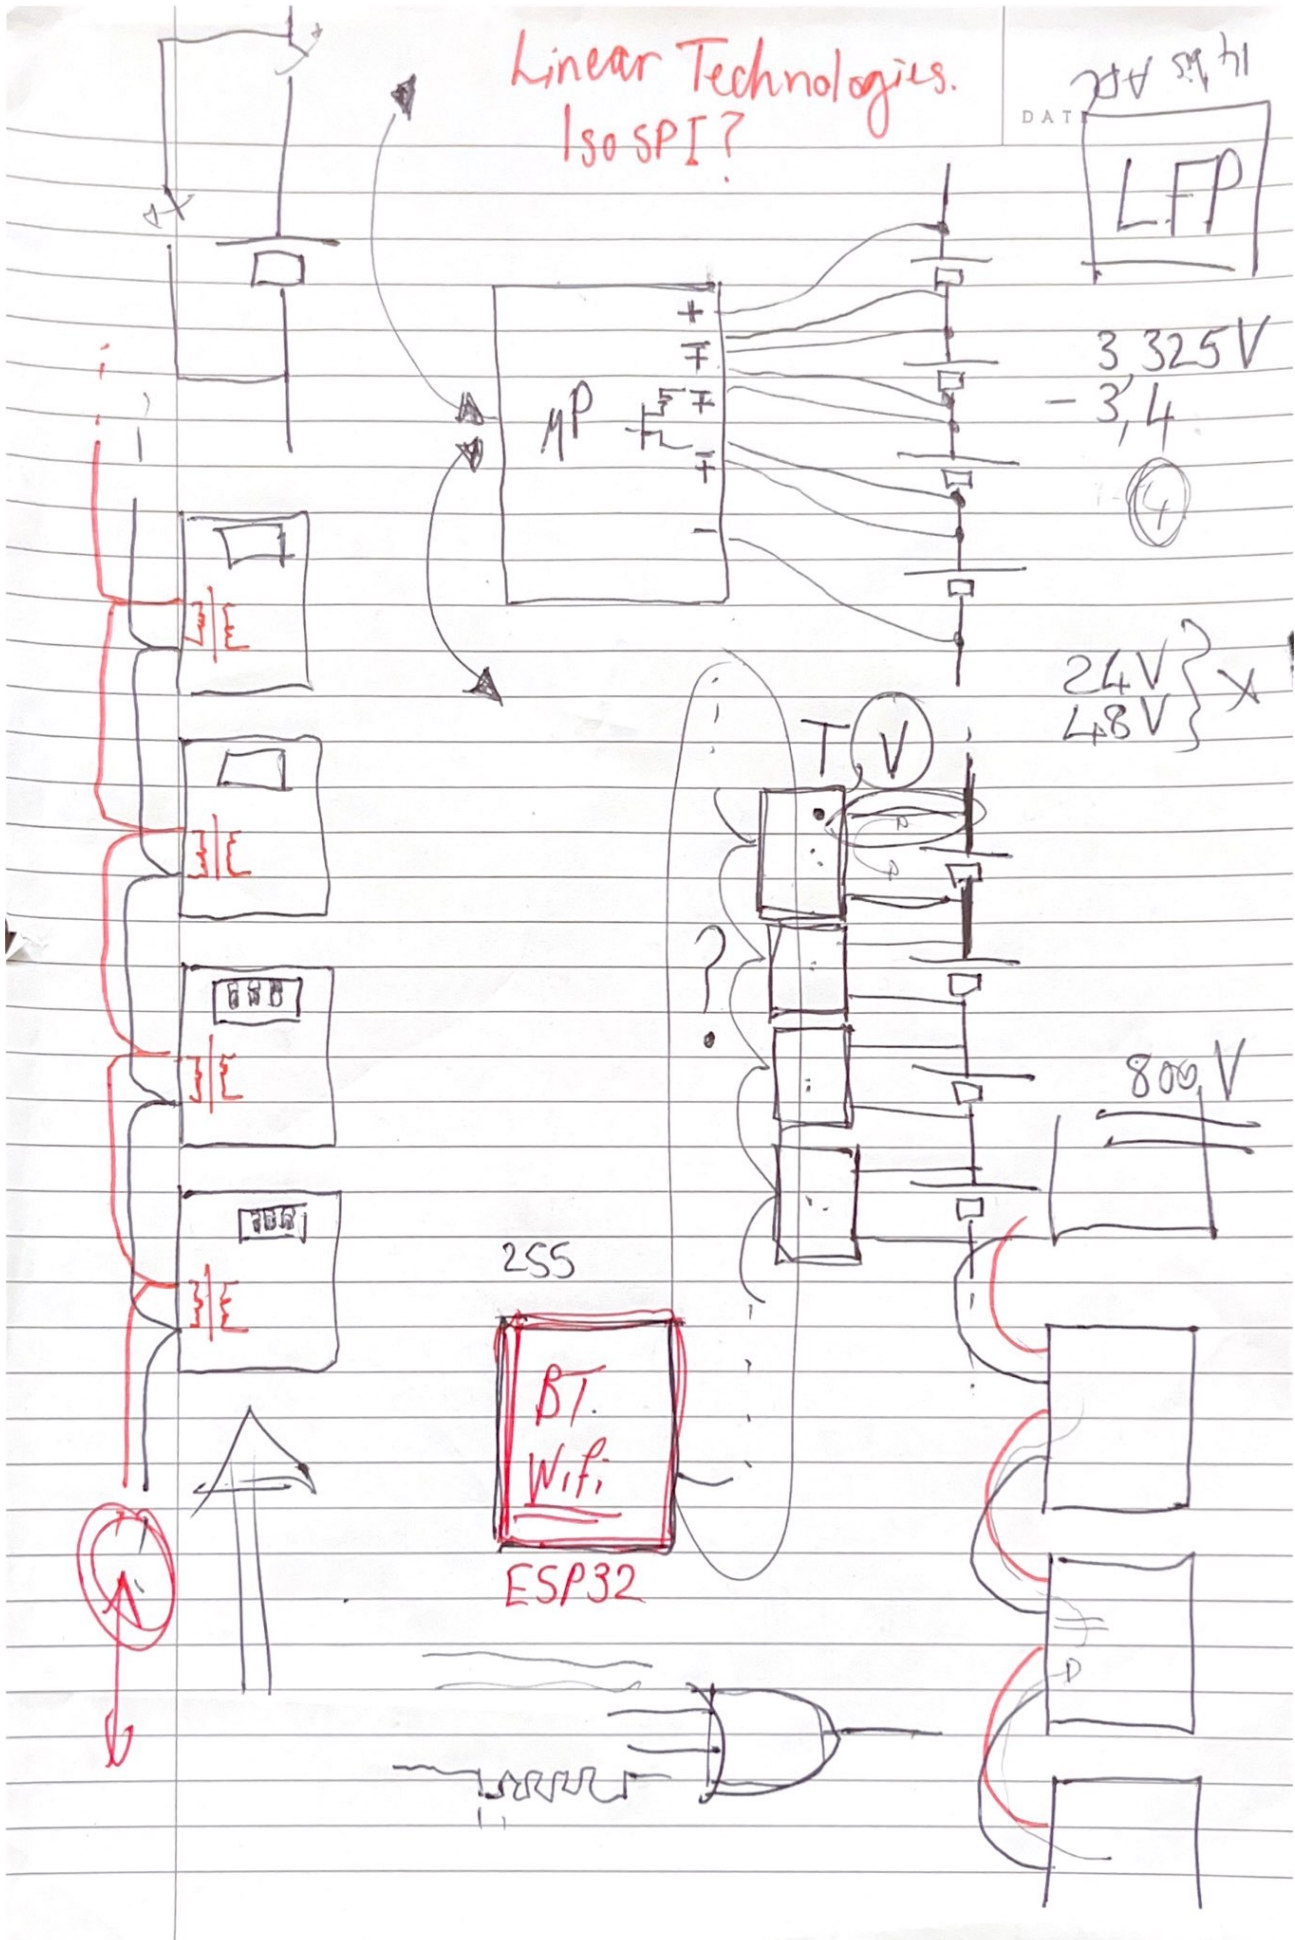 Linear Technologies.
IsoSPI?
14 bits ADC
DATE
LFP
+
+
3,325V
- 3,4
μP
4
-
24V
48V
X
T V
?
800V
255
BT.
Wifi
ESP32